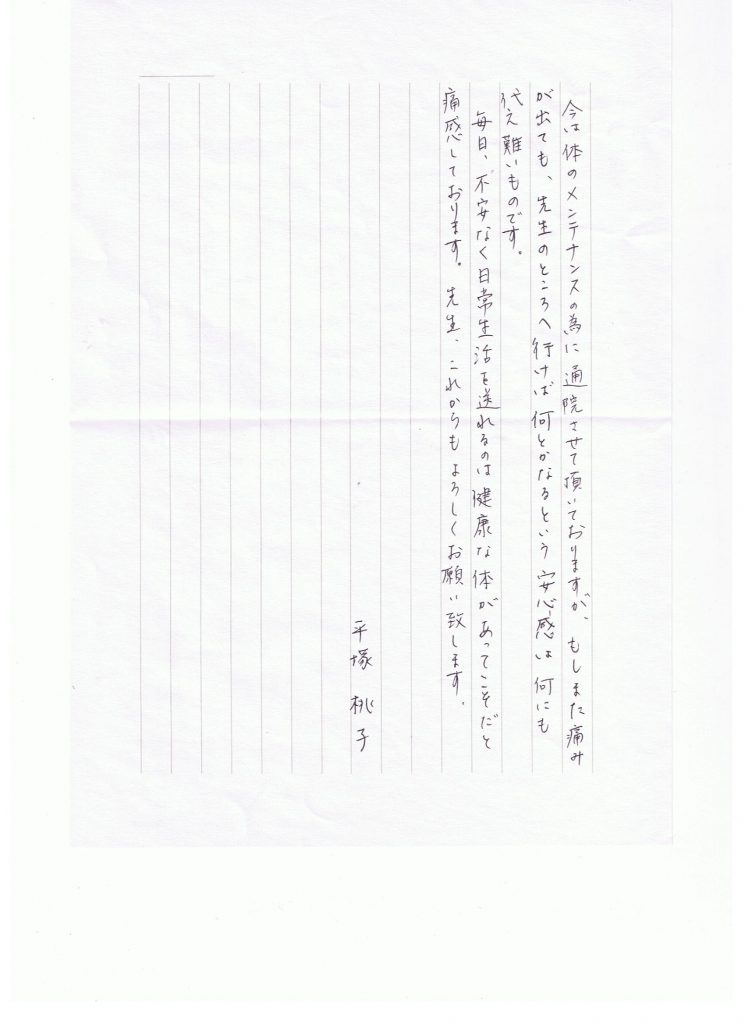 今は体のメンテナンスの為に通院させて頂いておりますが、もしまた痛み
が出ても、先生のところへ行けば何とかなるという安心感は何にも
代え難いものです。
毎日、不安なく日常生活を送れるのは健康な体があってこそだと
痛感しております。先生、これからもよろしくお願い致します。
平塚 桃子